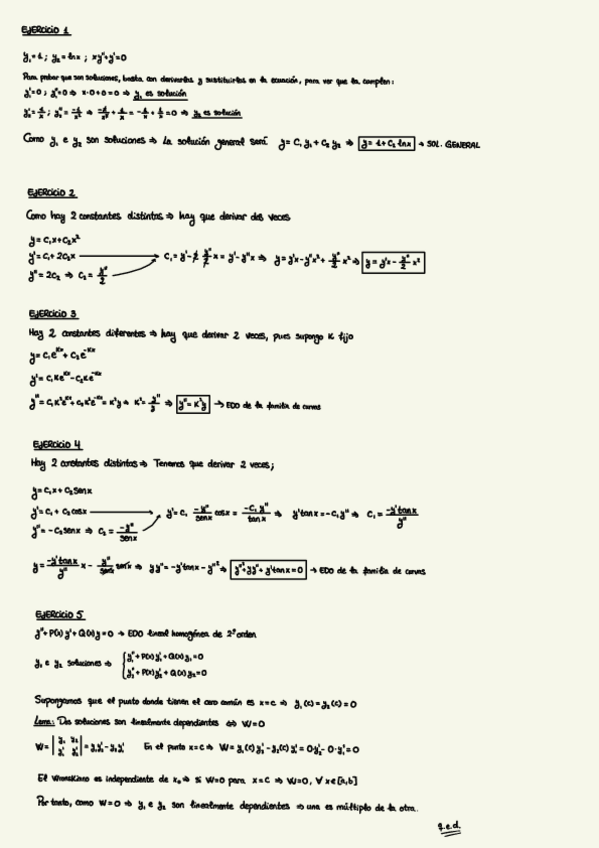 EJERCICIO 1
y₁=1 ; y₂=lnx ; xy''+y'=0
Para probar que son soluciones, basta con derivarlas y sustituirlas en la ecuación, para ver que la cumplen:
y₁'=0 ; y₁''=0 ⇒ x·0+0=0 ⇒ y₁ es solución
y₂'=1/x ; y₂''=-1/x² ⇒ -1/x² + 1/x = -1/x + 1/x = 0 ⇒ y₂ es solución
Como y₁ e y₂ son soluciones ⇒ La solución general será y=C₁y₁+C₂y₂ ⇒ y=1+C₂lnx → SOL. GENERAL
EJERCICIO 2
Como hay 2 constantes distintas ⇒ hay que derivar dos veces
y=C₁x+C₂x²
y'=C₁+2C₂x → C₁=y'-2 y''/2 x = y'-y''x ⇒ y=y'x-y''x²+y''/2 x² ⇒ y=y'x-y''/2 x²
y''=2C₂ ⇒ C₂=y''/2
EJERCICIO 3
Hay 2 constantes diferentes ⇒ hay que derivar 2 veces, pues supongo K fijo
y=C₁e^{Kx}+C₂e^{-Kx}
y'=C₁Ke^{Kx}-C₂Ke^{-Kx}
y''=C₁K²e^{Kx}+C₂K²e^{-Kx}=K²y ⇒ K²=y''/y ⇒ y''=K²y → EDO de la familia de curvas
EJERCICIO 4
Hay 2 constantes distintas ⇒ Tenemos que derivar 2 veces;
y=C₁x+C₂senx
y'=C₁+C₂cosx → y'=C₁ -y''/senx cosx = -C₁y''/tanx ⇒ y'tanx=-C₁y'' ⇒ C₁=-y'tanx/y''
y''=-C₂senx ⇒ C₂=-y''/senx
y=-y'tanx/y'' x - y''/senx senx ⇒ yy''=-y'tanx-y''² ⇒ y''²+yy''+y'tanx=0 → EDO de la familia de curvas
EJERCICIO 5
y''+P(x)y'+Q(x)y=0 → EDO lineal homogénea de 2º orden
y₁ e y₂ soluciones ⇒ { y₁''+P(x)y₁'+Q(x)y₁=0
y₂''+P(x)y₂'+Q(x)y₂=0
Supongamos que el punto donde tienen el cero común es x=c ⇒ y₁(c)=y₂(c)=0
Lema: Dos soluciones son linealmente dependientes ⇔ W=0
W=|y₁ y₂ y₁' y₂'|=y₁y₂'-y₂y₁' En el punto x=c ⇒ W=y₁(c)y₂'-y₂(c)y₁'=0·y₂'-0·y₁'=0
El Wronskiano es independiente de x₀ ⇒ si W=0 para x=c ⇒ W=0, ∀x∈[a,b]
Por tanto, como W=0 ⇒ y₁ e y₂ son linealmente dependientes ⇒ una es múltiplo de la otra.
q.e.d.